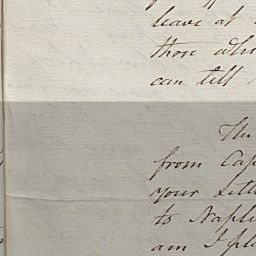 leave at
those who
can tell
The
from Cap
your Lette
to Naple
am I ple